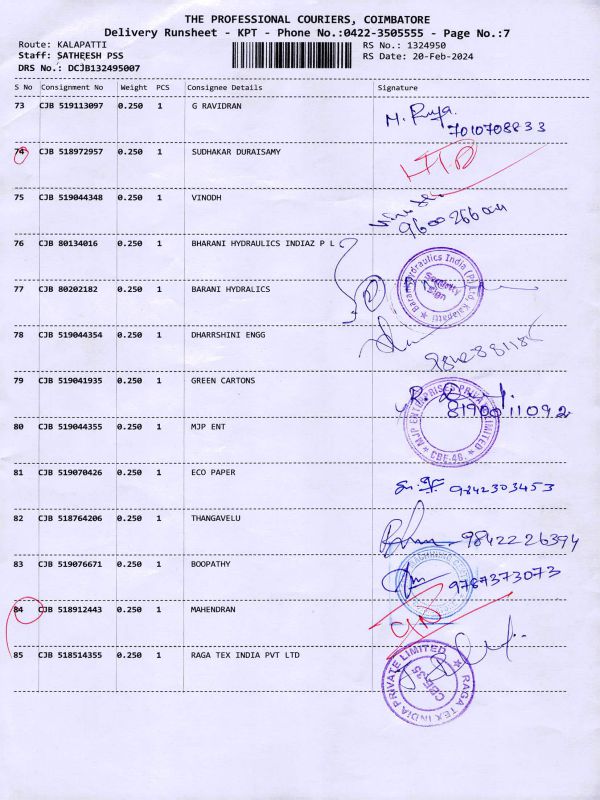 THE PROFESSIONAL COURIERS, COIMBATORE
Delivery Runsheet - KPT - Phone No.:0422-3505555 - Page No.:7
Route: KALAPATTI RS No.: 1324950
Staff: SATHEESH PSS RS Date: 20-Feb-2024
DRS No.: DCJB132495007
S No Consignment No Weight PCS Consignee Details Signature
73 CJB 519113097 0.250 1 G RAVIDRAN
7010708833
74 CJB 518972957 0.250 1 SUDHAKAR DURAISAMY
75 CJB 519044348 0.250 1 VINODH
76 CJB 80134016 0.250 1 BHARANI HYDRAULICS INDIAZ P L
Barani Hydraulics India (P) Ltd, Kalapatti
Security Sign
77 CJB 80202182 0.250 1 BARANI HYDRALICS
78 CJB 519044354 0.250 1 DHARRSHINI ENGG
79 CJB 519041935 0.250 1 GREEN CARTONS
8190011092
80 CJB 519044355 0.250 1 MJP ENT
MJP ENTERPRISES PRIVATE LIMITED
CBE-49.
81 CJB 519070426 0.250 1 ECO PAPER
9842303453
82 CJB 518764206 0.250 1 THANGAVELU
9842226394
83 CJB 519076671 0.250 1 BOOPATHY
9787373073
84 CJB 518912443 0.250 1 MAHENDRAN
85 CJB 518514355 0.250 1 RAGA TEX INDIA PVT LTD
RAGA TEX INDIA PRIVATE LIMITED
CBE-35